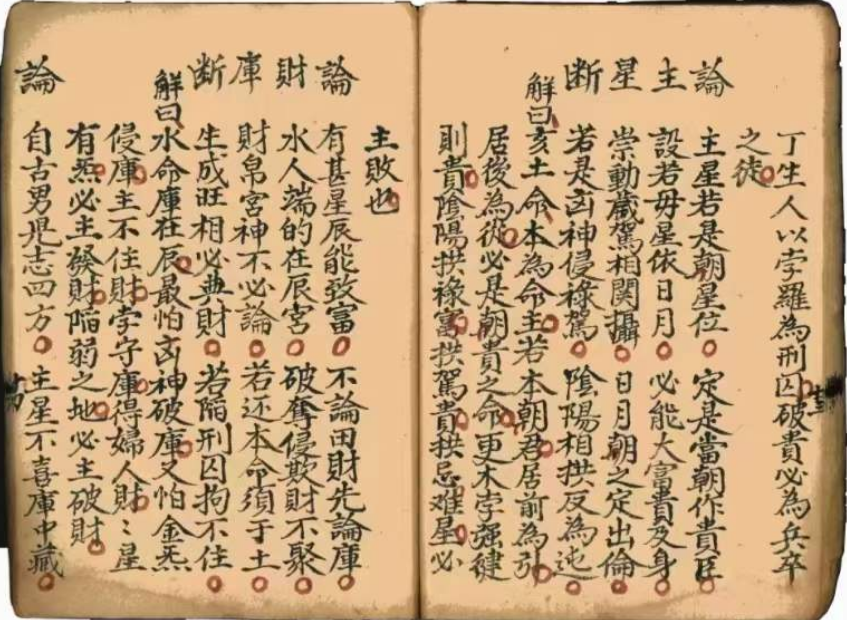 丁生人以孛羅為刑囚破貴必為兵卒
之徒
論主星断
主星若是朝星位 定是當朝作貴臣
設若毋星依日月 必能大富貴及身
崇動歲駕相関攝 日月朝之定出倫
若是凶神侵祿駕 陰陽相拱反為迍
解曰亥土命本為命主若本朝君居前為引
居後為從必是朝貴之命更木孛强健
則貴陰陽拱祿富拱駕貴拱忌难星必
主敗也
論財庫断
有甚星辰能致富 不論田財先論庫
水人端的在辰宮 破奪侵欺財不聚
財帛宮神不必論 若还本命須于土
生成旺相必典財 若陷刑囚拘不住
解曰水命庫在辰最怕凶神破庫又怕金炁
侵庫主不住財孛守庫得婦人財〻星
有炁必主發財陷弱之地必主破財
論
自古男児志四方 主星不喜庫中藏